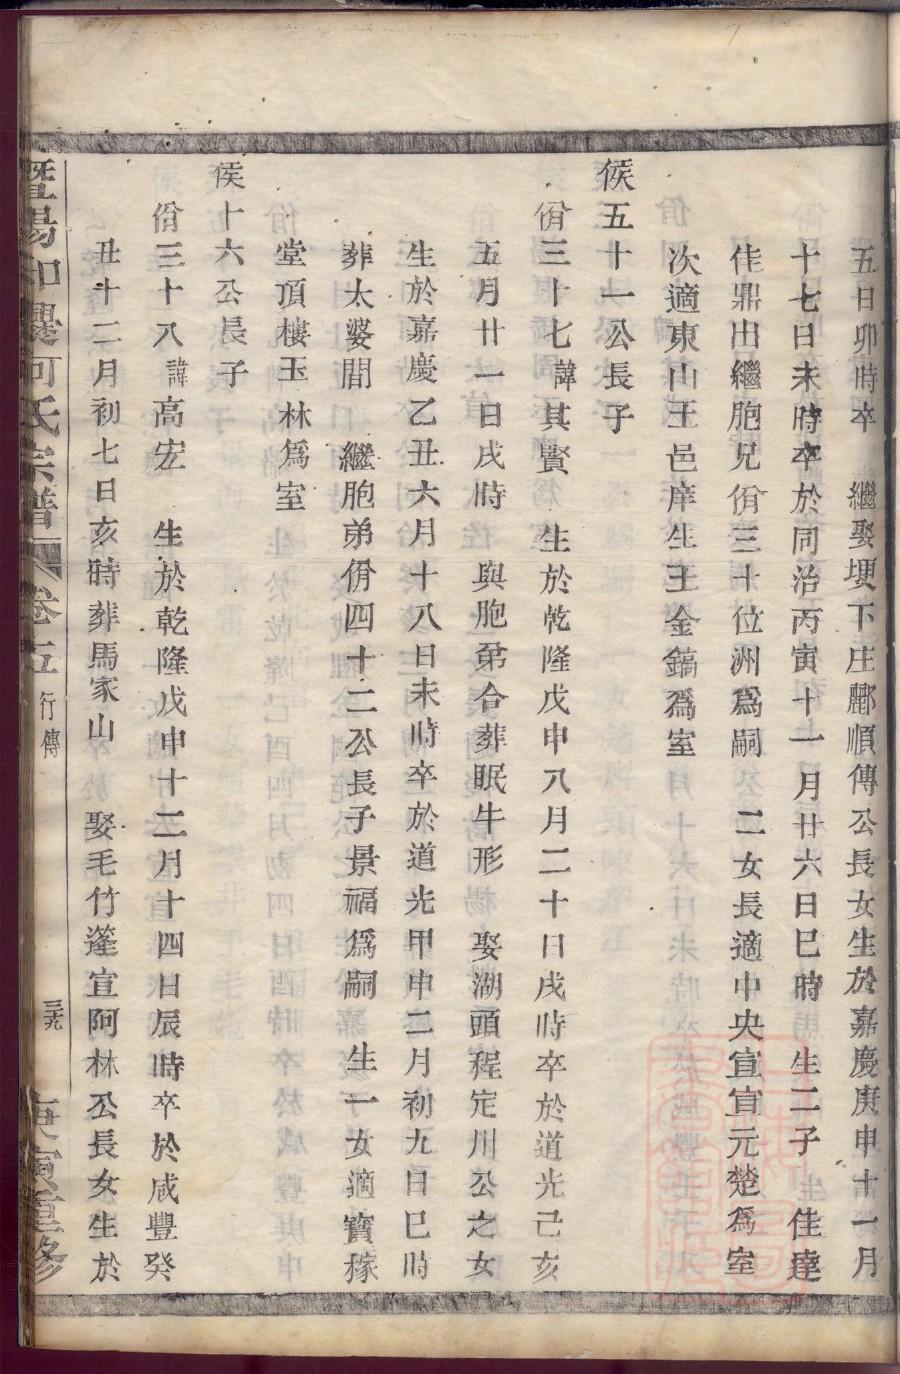 五日卯時卒　繼娶埂下庄酈順傳公長女生於嘉慶庚申十一月
十七日未時卒於同治丙寅十一月廿六日巳時　生二子　佳達
佳鼎出繼胞兄佾三十位洲爲嗣　二女長適中央宣宣元楚爲室
次適東山王邑庠生王金鎬爲室
侯五十一公長子
佾三十七諱其賢　生於乾隆戊申八月二十日戌時卒於道光己亥
五月廿一日戌時　與胞弟合葬眠牛形　娶湖頭程定川公之女
生於嘉慶乙丑六月十八日未時卒於道光甲申二月初九日巳時
葬太婆閒　繼胞弟佾四十二公長子景福爲嗣　生一女適寶稼
堂頂樓玉林爲室
侯十六公長子
佾三十八諱高宏　生於乾隆戊申十二月十四日辰時卒於咸豐癸
丑十二月初七日亥時葬馬家山　娶毛竹蓬宣阿林公長女生於
暨陽　　何氏宗譜　卷五　行傳　三九　庚寅重修